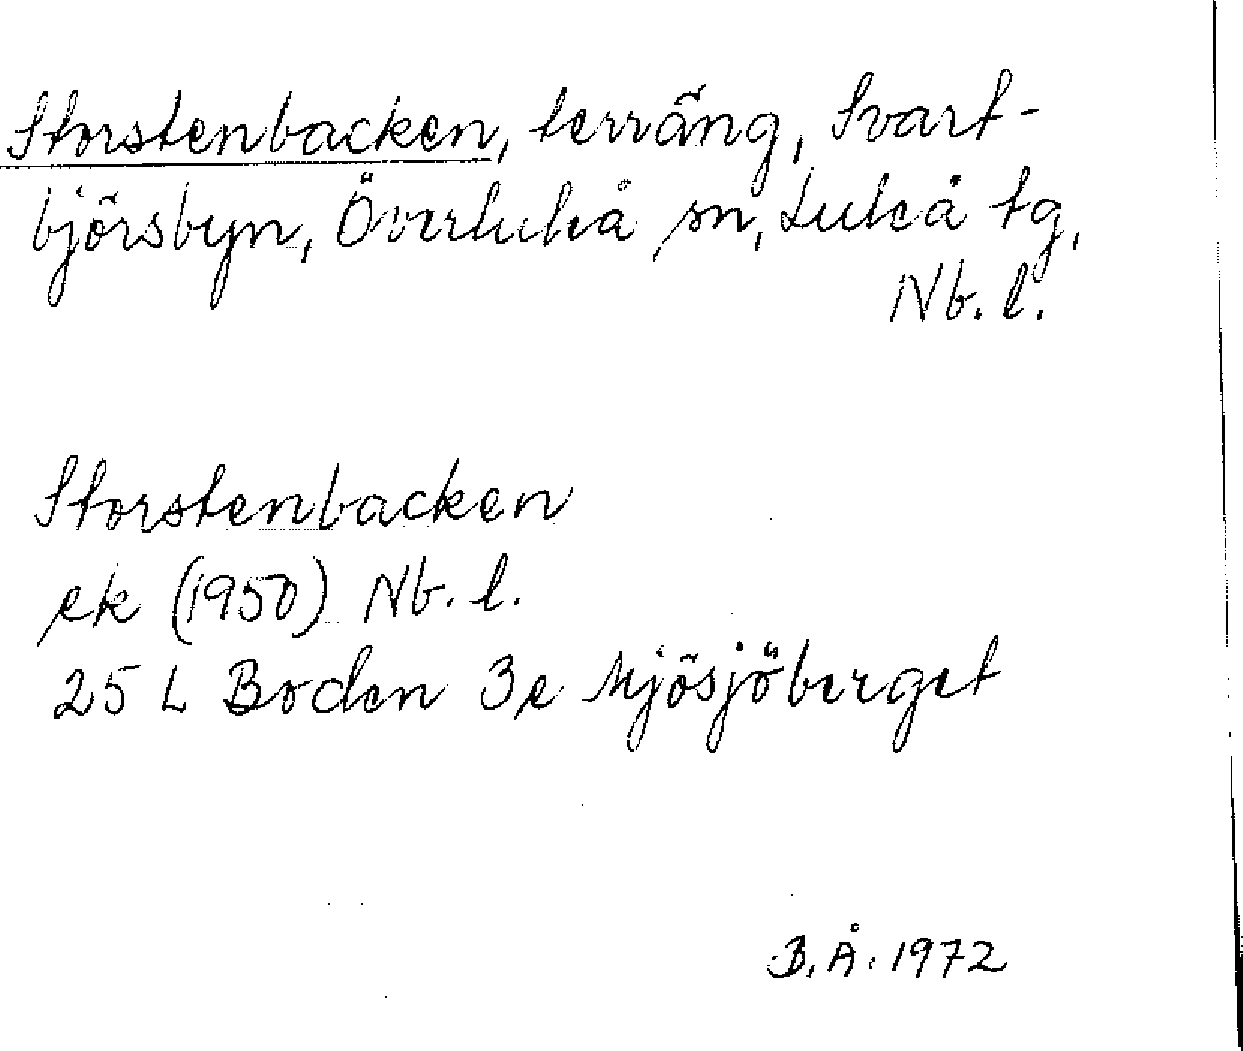 Storstenbacken, terräng, Svart-
björsbyn, Överluleå sn, Luleå tg,
Nb. l.
Storstenbacken
ek (1950) Nb. l.
25 L Boden 3e Mjösjöberget
B. Å. 1972